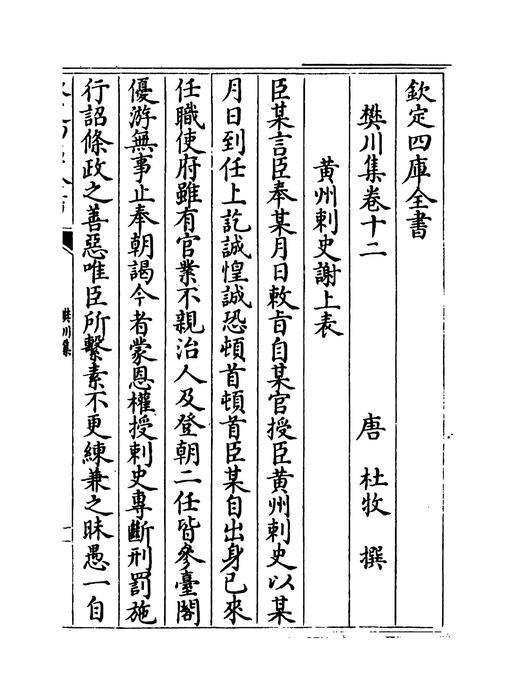 欽定四庫全書
樊川集卷十二　唐　杜牧　撰
黃州刺史謝上表
臣某言臣奉某月日敕㫖自某官授臣黃州刺史以某
月日到任上訖誠惶誠恐頓首頓首臣某自出身已來
任職使府雖有官業不親治人及登朝二任皆參臺閣
優游無事止奉朝謁今者蒙恩權授刺史專斷刑罰施
行詔條政之善惡唯臣所繫素不更練兼之昧愚一自
樊川集
一